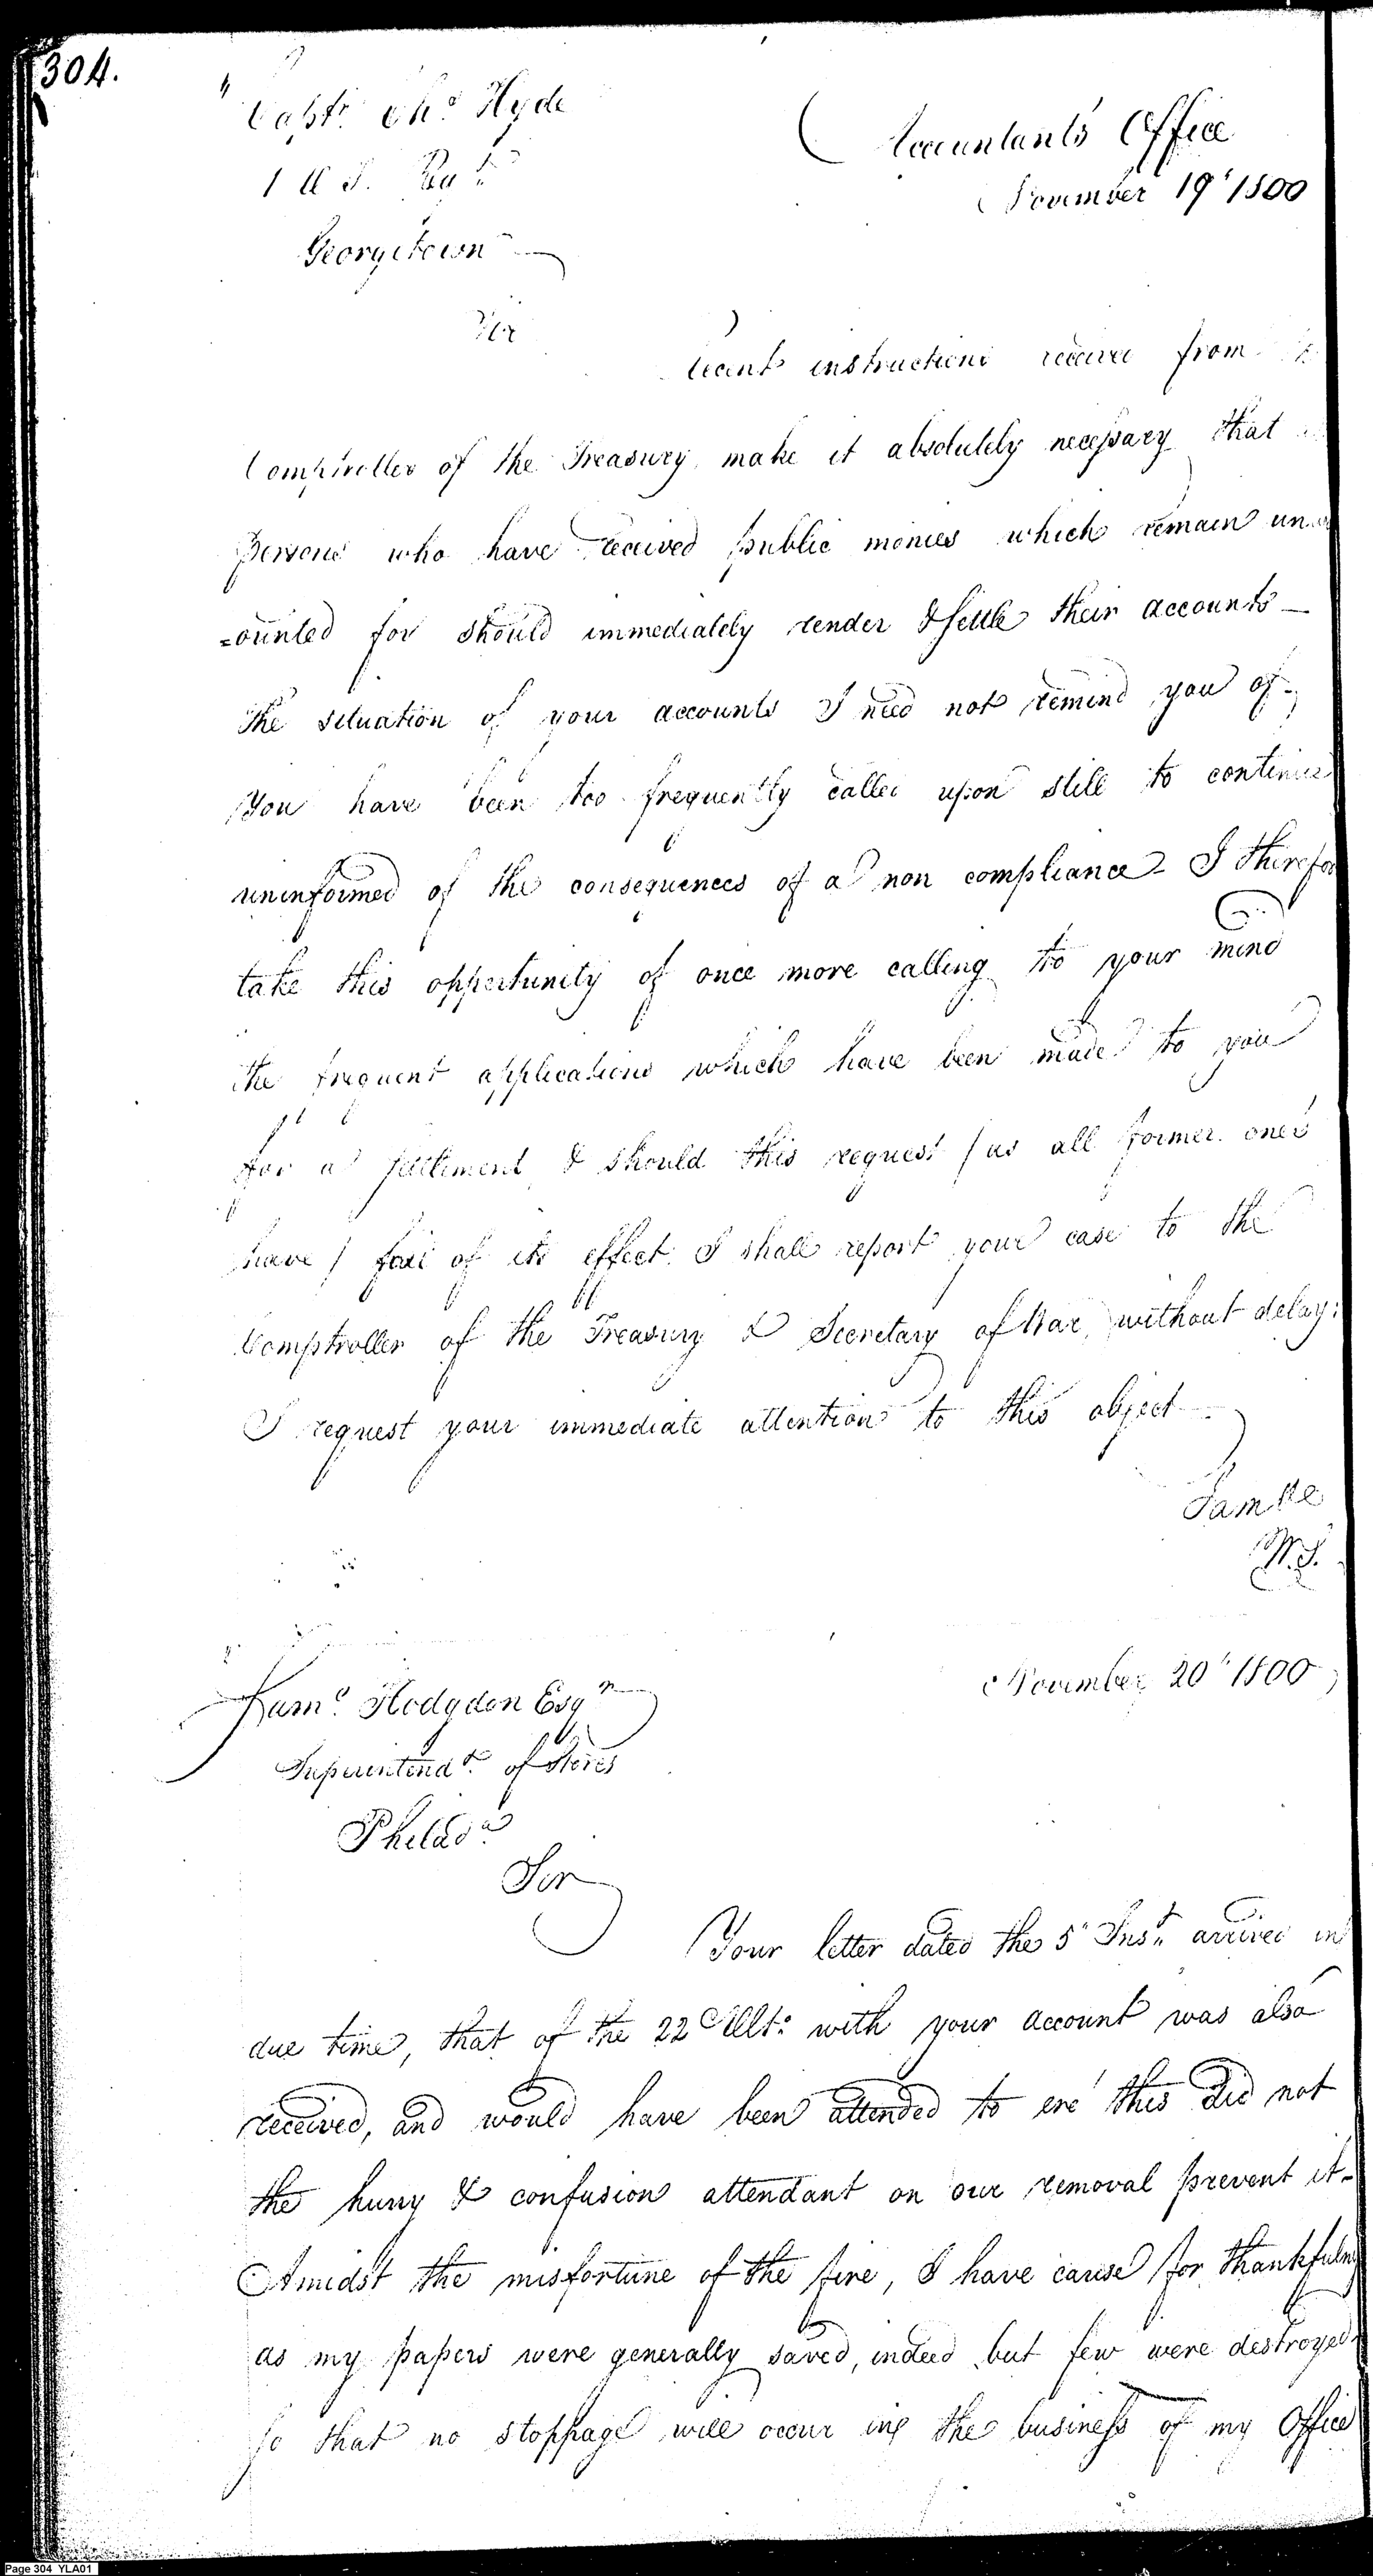 304.
Capt. Chs. Hyde
1 U S. Regt.
Georgetown
Accountants Office
November 19th 1800
Sir
Recent instructions received from the
Comptroller of the Treasury make it absolutely necessary that
Persons who have received public monies which remain unac
=counted for should immediately render & settle their accounts—
The situation of your accounts I need not remind you of—
You have been too frequently called upon still to continue
uninformed of the consequences of a non compliance— I therefor
take this oppertunity of once more calling to your mind
the frequent applications which have been made to you
for a settlement & should this request / as all former ones
have / fail of its effect I shall report your case to the
Comptroller of the Treasury & Secretary of War, without delay.
I request your immediate attention to this object—
I am &c
W.S.
November 20th 1800
Saml. Hodgdon Esqr.
Superintendt. of Stores
Philada.
Sir
Your letter dated the 5th Inst. arrived in
due time, that of the 22 Ulto. with your account was also
received, and would have been attended to ere this did not
the hurry & confusion attendant on our removal prevent it—
Amidst the misfortune of the fire, I have cause for thankfulness
as my papers were generally saved, indeed but few were destroyed
so that no stoppage will occur in the business of my Office
Page 304 YLA01